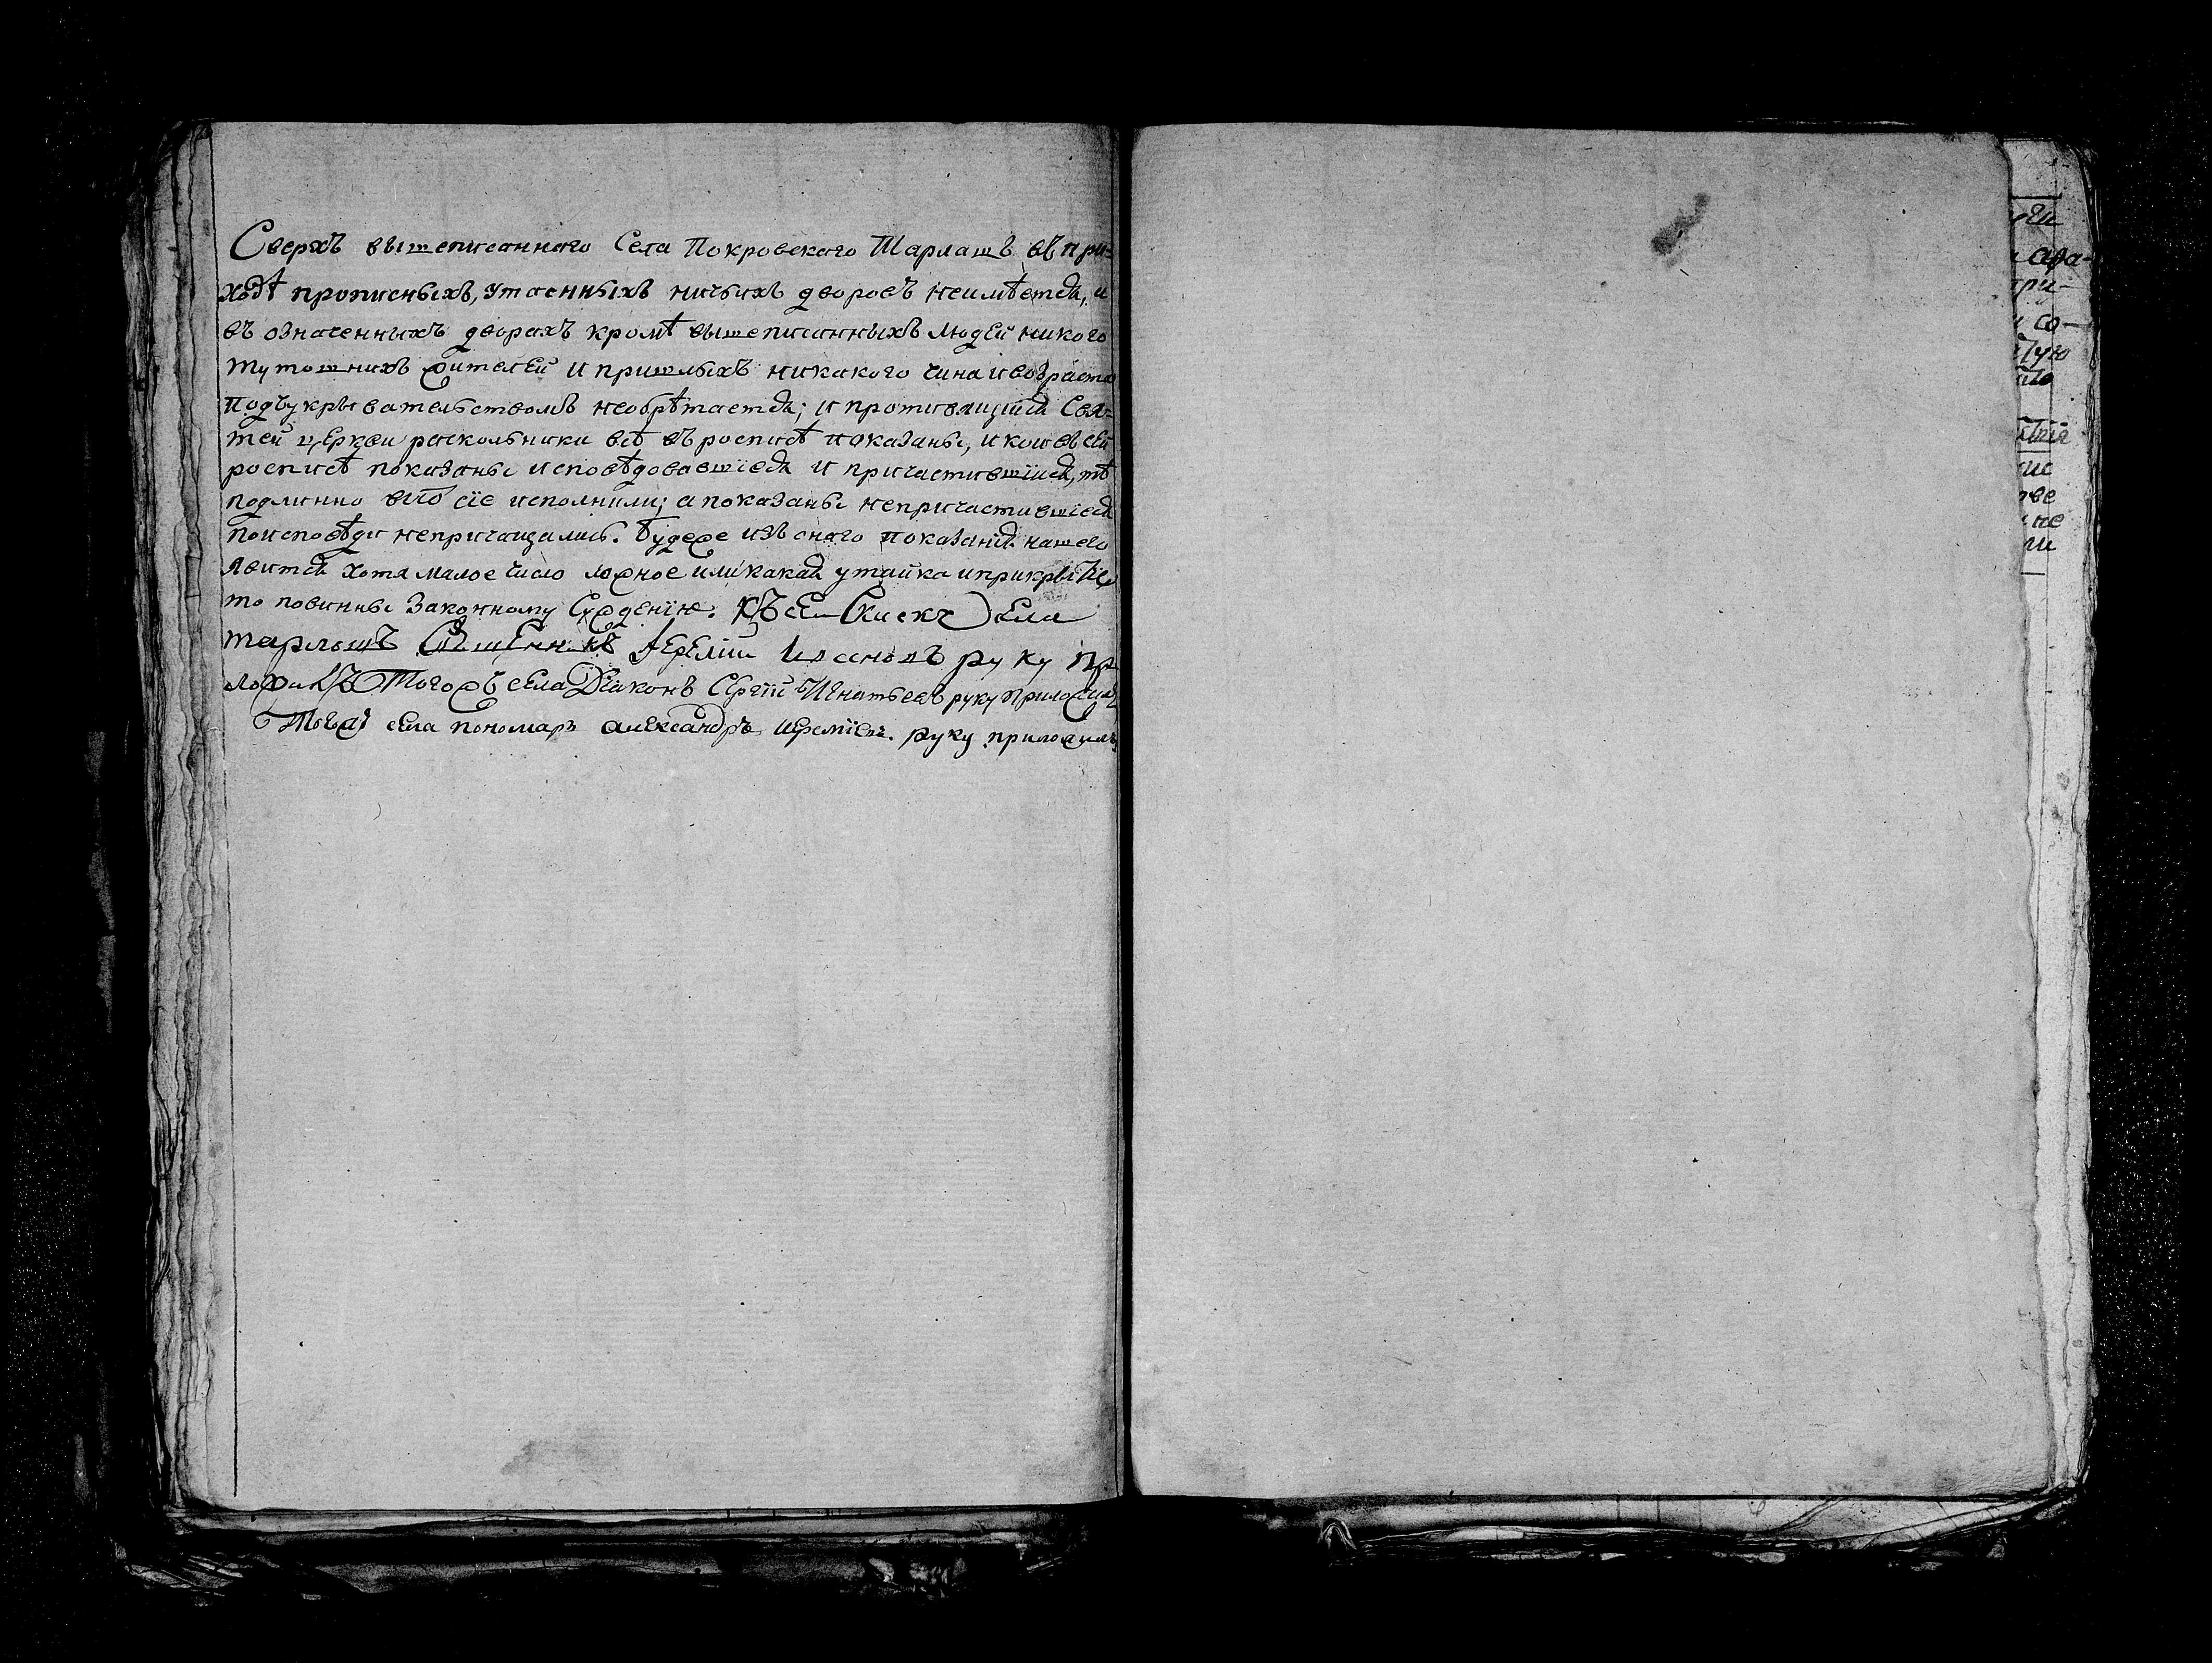 Сверхъ вышеписаннаго Села Покровскаго Тарлашъ въ при-
ходѣ прописныхъ, утаенныхъ ничьихъ дворовъ неимѣется, и
въ означенныхъ дворахъ кромѣ вышеписанныхъ людей никого
тутошнихъ жителей и пришлыхъ никакого чина и возраста
подъукрывательствомъ необрѣтается; и противящïися Свя-
тей церкви раскольники всѣ въ росписѣ показаны, и кои въ сей
росписѣ показаны исповѣдовавшïеся и причастившïися, тѣ
подлинно все сïе исполнили; а показаны непричастившïеся
поисповѣди непричащались. Будеже изъ онаго показанïя нашего
явится хотя малое число ложное или какая утайка и прикрытïе
то повинны законному сужденïю. Къ сей скаскѣ села
тарлашъ Священникъ Iеремïи Ивановъ руку пр
ложилъ Тогожъ села Дïаконъ Сергïй Игнатьевъ руку приложилъ
Тогожъ села пономарь александръ иеремïевъ руку приложилъ
ара-
при-
со-
тве
не
ли